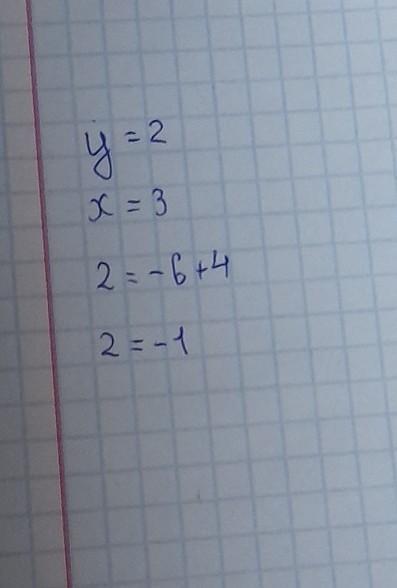 y = 2
x = 3
2 = -6+4
2 = -1